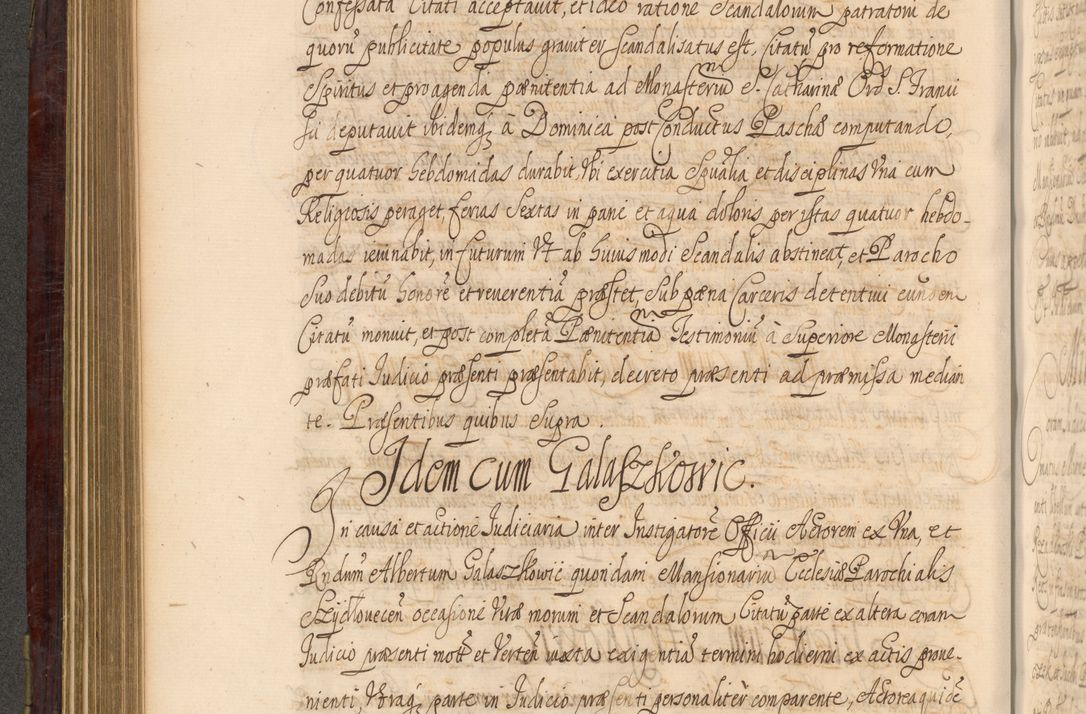 Confessata Citati acceptavit, et ideo ratione Scandalorum patratorū de
quorū publicitate populus graviter scandalisatus est, Citatū pro reformatione
Spiritus et pro agenda pænitentia ad Monasteriū S. Catharinæ Ord S. Franci
sci deputavit ibidemq, à Dominica post Conductus Paschæ computando,
per quatuor hebdomadas durabit, Ubi exercitia Spūalia et disciplinas Una cum
Religiosis peraget, ferias Sextas in pane et aqua doloris per istas quatuor hebdo-
madas ieiunabit, in futurum Ut ab huiusmodi Scandalis abstineat, et Parocho
suo debitū honorē et reverentiā præstet, sub pæna Carceris detentivi eundem
Citatū monuit, et post completā Pænitentiā Testimoniū à Superiore Monasterii
præfati Judicio præsenti præsentabit, decreto præsenti ad præmissa median
te. Præsentibus quibus Supra.
Idem cum Galaszkowic.
In causa et actione Judiciaria inter Instigatorē Officii Actorem ex Una, et
Rndum Albertum Galaszkowic quondam Mansionariū Ecclesiæ Parochialis
Szydlovecen occasione Vitæ morum et Scandalorum Citatū parte ex altera coram
Judicio præsenti mott et Verten iuxta exigentiā termini hodierni ex actis prove-
nienti, Utraq, parte in Judicio præsenti personalitèr comparente, Actorea quidē